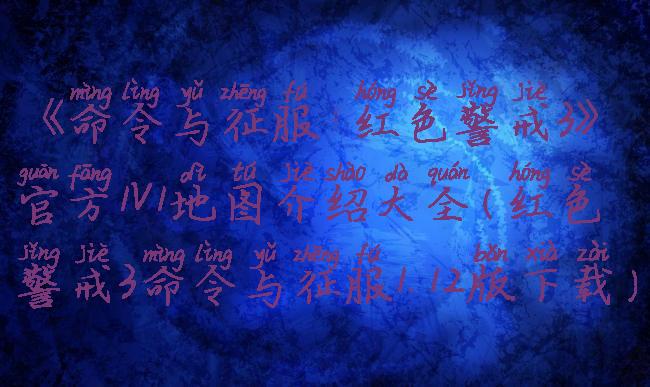 mìng lìng yǔ zhēng fú hóng sè jǐng jiè
《命令与征服：红色警戒3》
guān fāng dì tú jiè shào dà quán hóng sè
官方1V1地图介绍大全（红色
jǐng jiè mìng lìng yǔ zhēng fú bǎn xià zài
警戒3命令与征服1.12版下载）